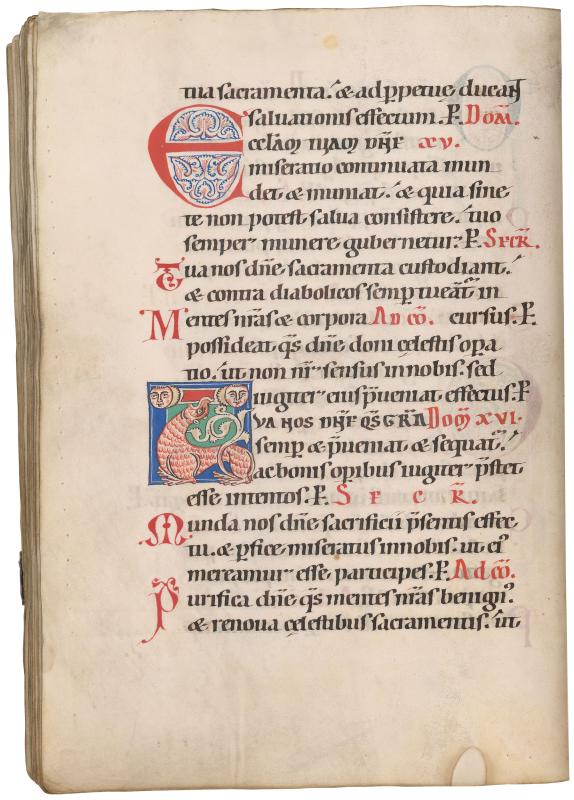 tua sacramenta. & ad ꝑpetuę ducant
saluationis effectum. P. Dom̅.
Ecclām tuam dn̅e xv.
miseratio continuata mun
det & muniat. & quia sine
te non potest salua consistere. tuo
semper munere gubernetur: P. Secr̅.
Tua nos dn̅e sacramenta custodiant.
& contra diabolicos semꝑ tueant̅ in
Mentes nr̅as & corpora Ad co̅. cursus. P.
possideat q̅s dn̅e doni cęlestis oꝑa
tio. ut non nr̅ sensus in nobis. sed
iugiter eius p̅ueniat effectus. P
Tua nos dn̅e q̅s gr̅a Dom̅ xvi.
semꝑ & p̅ueniat & sequat̅.
ac bonis oꝑibus iugiter p̅stet
esse intentos. P. S e c r̅.
Munda nos dn̅e sacrificii p̅sentis effec
tu. & ꝑfice miseratus in nobis. ut ei᾽
mereamur esse participes. P. Ad co̅.
Purifica dn̅e q̅s mentes nr̅as benign᾽.
& renoua cęlestibus sacramentis. ut